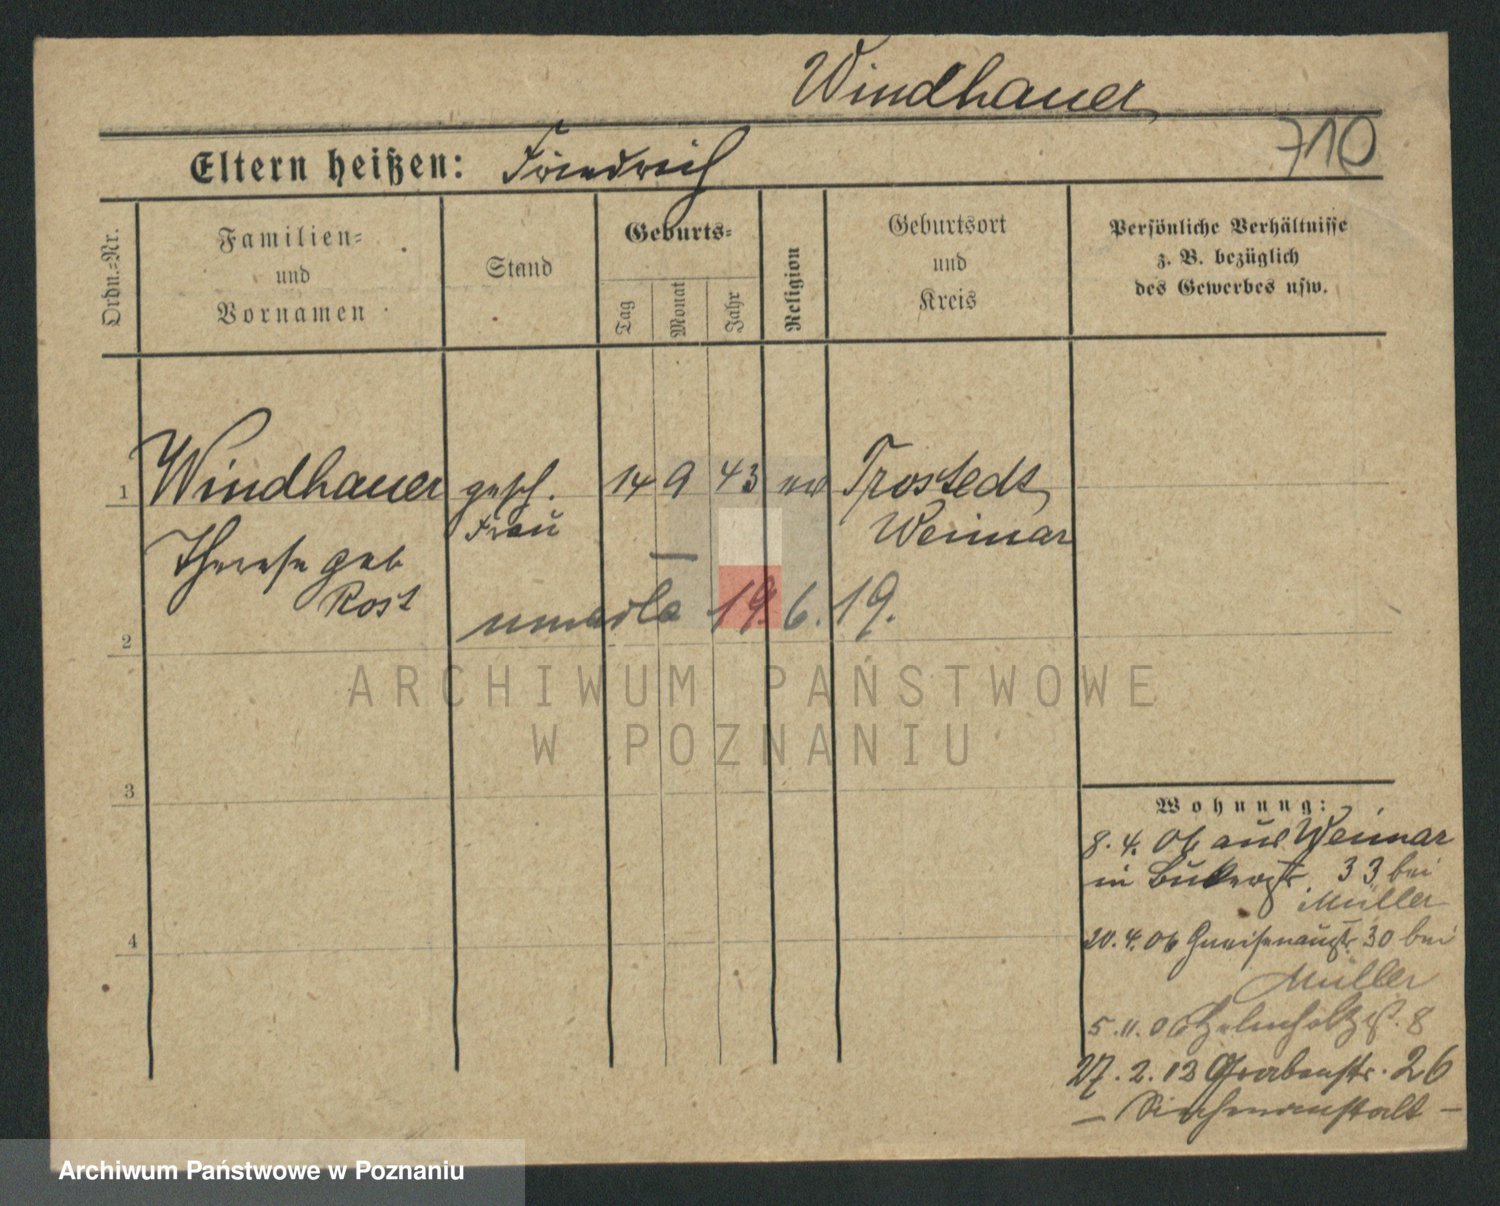 Windhauer
710
Eltern heißen: Friedrich
Ordn.=Nr.
Familien=
und
Vornamen
Stand
Geburts=
Tag
Monat
Jahr
Religion
Geburtsort
und
Kreis
Persönliche Verhältnisse
z. B. bezüglich
des Gewerbes usw.
1 Windhauer gesch. 14 9 43 ev Trostedt,
Frau Weimar
Therese geb
Rost
19. 6. 19.
2
ARCHIWUM PAŃSTWOWE
W POZNANIU
3
4
Wohnung:
8. 4. 06 aus Weimar
in Bukerstr. 33 bei
Müller
20. 4. 06 Gneisenaustr. 30 bei
Müller
5. 11. 06 Helmholtzstr. 8
27. 2. 12 Grabenstr. 26
– Siechenanstalt –
Archiwum Państwowe w Poznaniu